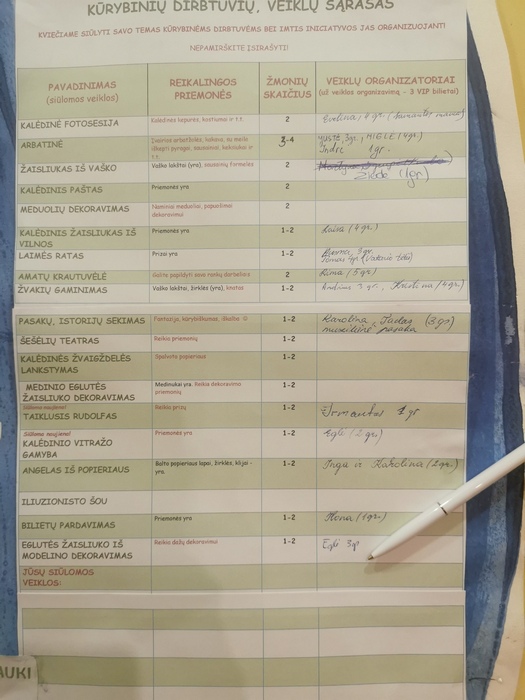 KŪRYBINIŲ DIRBTUVIŲ, VEIKLŲ SĄRAŠAS
KVIEČIAME SIŪLYTI SAVO TEMAS KŪRYBINĖMS DIRBTUVĖMS BEI IMTIS INICIATYVOS JAS ORGANIZUOJANT!
NEPAMIRŠKITE ĮSIRAŠYTI!
PAVADINIMAS
(siūlomos veiklos)
REIKALINGOS
PRIEMONĖS
ŽMONIŲ
SKAIČIUS
VEIKLŲ ORGANIZATORIAI
(už veiklos organizavimą - 3 VIP bilietai)
KALĖDINĖ FOTOSESIJA
Kalėdinės kepurės, kostiumai ir t.t.
2
Evelina, 4 gr.
ARBATINĖ
3-4
3gr., MIGLĖ (4gr.)
Indrė 1gr.
ŽAISLIUKAS IŠ VAŠKO
Vaško lakštai (yra), sausainių formelės
2
Ziedė (1gr.)
KALĖDINIS PAŠTAS
Priemonės yra
2
MEDUOLIŲ DEKORAVIMAS
Naminiai meduoliai, papuošimai
dekoravimui
2
KALĖDINIS ŽAISLIUKAS IŠ
VILNOS
Priemonės yra
1-2
(4 gr.)
LAIMĖS RATAS
Prizai yra
1-2
3gr.
AMATŲ KRAUTUVĖLĖ
Galite papildyti savo rankų darbeliais
2
Rima (5gr.)
ŽVAKIŲ GAMINIMAS
Vaško lakštai, žirklės (yra), knatas
1-2
3 gr., Kristina (4gr.)
PASAKŲ, ISTORIJŲ SEKIMAS
Fantazija, kūrybiškumas, iškalba ☺
1-2
Karolina, Judas (3gr)
muzikinė pasaka
ŠEŠĖLIŲ TEATRAS
Reikia priemonių
1-2
KALĖDINĖS ŽVAIGŽDELĖS
LANKSTYMAS
Spalvoto popieriaus
1-2
MEDINIO EGLUTĖS
ŽAISLIUKO DEKORAVIMAS
Medinukai yra. Reikia dekoravimo
priemonių
1-2
Siūloma naujiena!
TAIKLUSIS RUDOLFAS
Reikia prizų
1-2
Irmantas 1gr
Siūloma naujiena!
KALĖDINIO VITRAŽO
GAMYBA
Priemonės yra
1-2
Eglė (2gr)
ANGELAS IŠ POPIERIAUS
Balto popieriaus lapai, žirklės, klijai -
yra.
1-2
Inga ir Karolina (2gr.)
ILIUZIONISTO ŠOU
BILIETŲ PARDAVIMAS
Priemonės yra
1-2
(1gr.)
EGLUTĖS ŽAISLIUKO IŠ
MODELINO DEKORAVIMAS
Reikia dažų dekoravimui
1-2
Eglė 3gr
JŪSŲ SIŪLOMOS
VEIKLOS:
AUKI